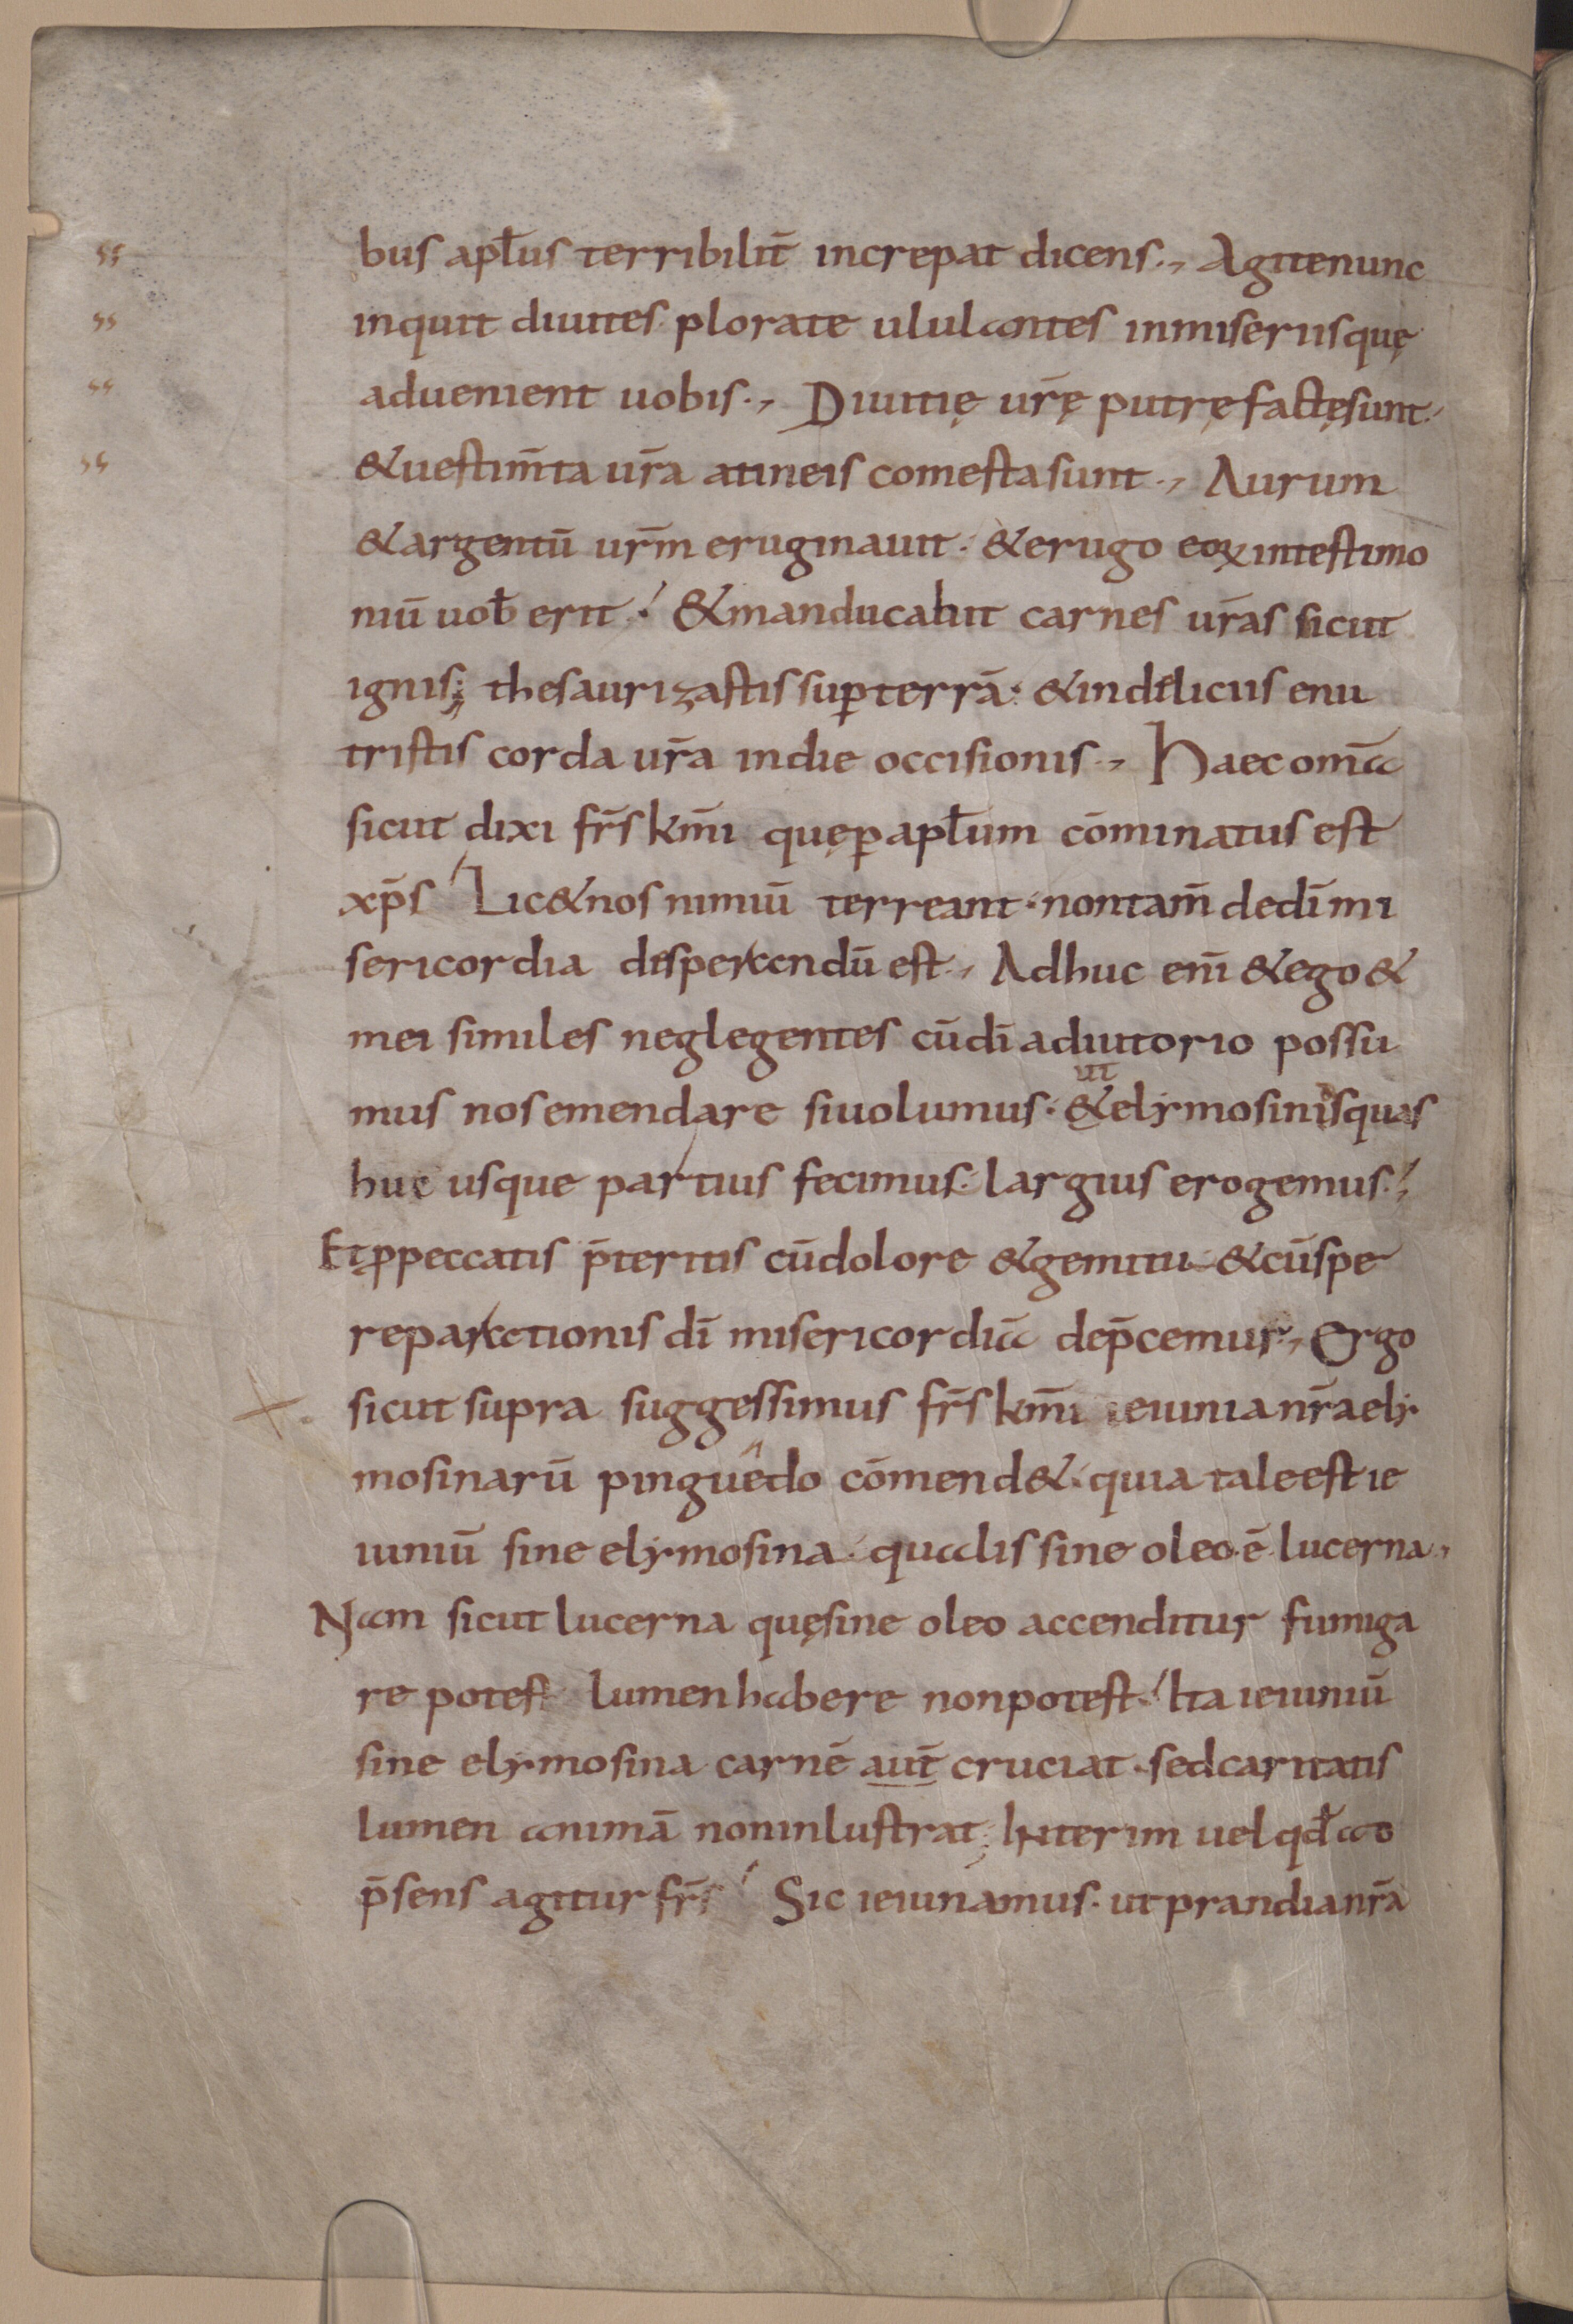 bus apłus terribilit̄ increpat dicens., Agite nunc
inquit diuites plorate ululantes inmiseriis quę
aduenient uobis., Diuitię ur̄ę putręfactę sunt.
& uestim̄ta ur̄a atineis comesta sunt., Aurum
& argentū ur̄m eruginauit. & erugo eoꝝ intestimo
niū uob̄ erit. & manducabit carnes ur̄as sicut
ignis; thesaurizastis suꝑ terrā. & indeliciis enu
tristis corda ur̄a indie occisionis., Haec om̄a
sicut dixi fr̄s km̄i quę ꝑ apłum cōminatus est
xp̄s Lic& nos nimiū terreant. non tam̄ dedī mi
sericordia disperandū est., Adhuc enī & ego &
mei similes neglegentes cū dī adiutorio possu
mus nos emendare si uolumus. ut & elymosinis quas
huc usque partius fecimus. largius erogemus.
Et ꝓ peccatis p̄teritis cū dolore & gemitu & cū spe
reparationis dī misericordiā dep̄cemur., Ergo
sicut supra suggessimus fr̄s km̄i ieiunia nr̄a ely
mosinarū pinguedo cōmend&. quia tale est ie
iuniū sine elymosina. qualis sine oleo ē lucerna.,
Nam sicut lucerna quę sine oleo accenditur fumiga
re potest lumen habere non potest. Ita ieiuniū
sine elymosina carnē aut̄ cruciat. sed caritatis
lumen animā non inlustrat; Interim uel qđ ao
p̄sens agitur fr̄s Sic ieiunamus. ut prandia nr̄a